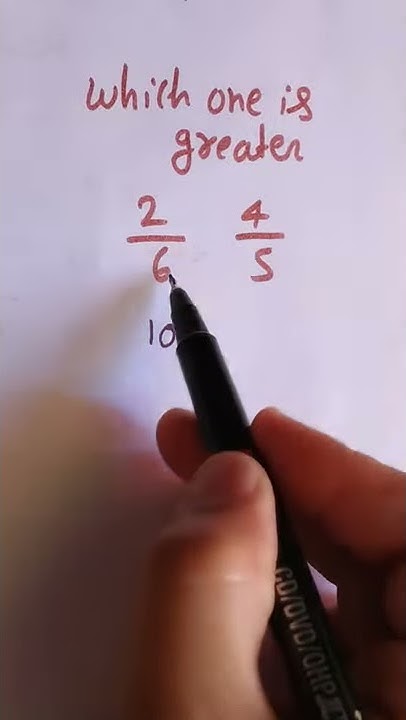 which one is
greater
2 4
6 5
10
CD/DVD/OHP